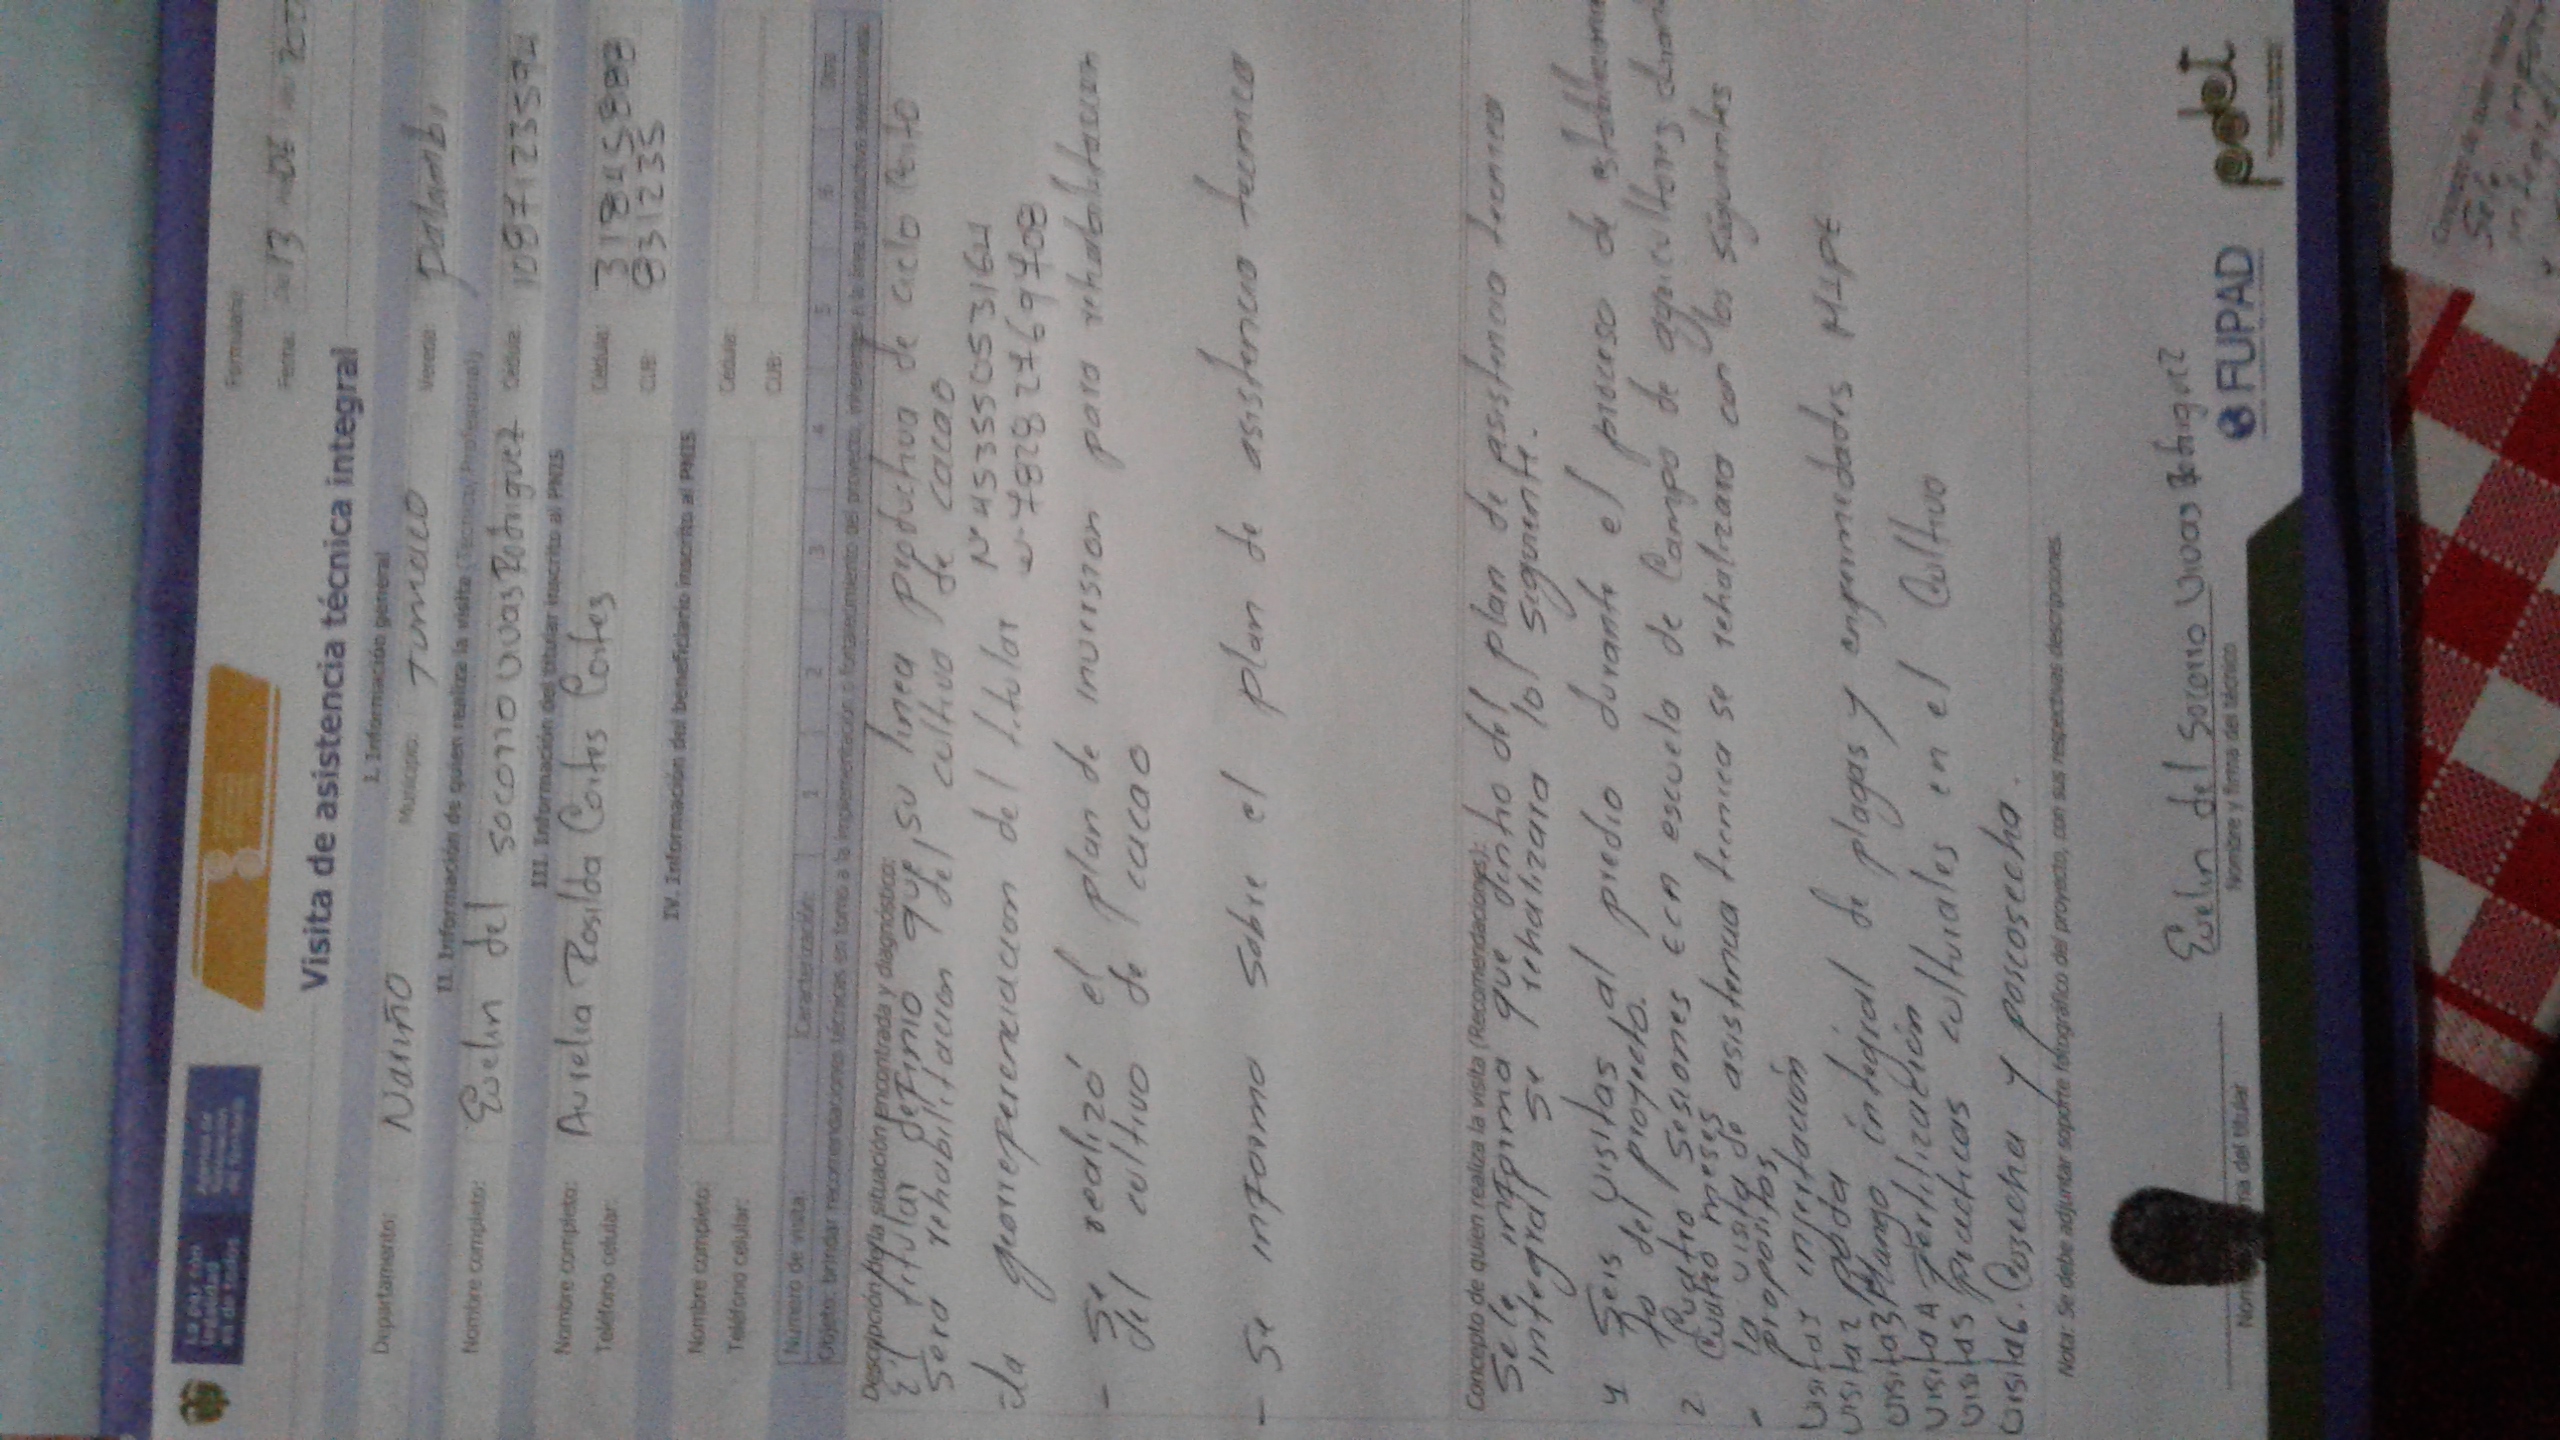 La paz con legalidad es de todos
Agencia de Renovación del Territorio
Formulario:
Fecha:
Visita de asistencia técnica integral
I. Información general
Departamento: Nariño Municipio: Tumaco Vereda: palambi
II. Información de quien realiza la visita (Técnico/Profesional)
Nombre completo: Evelin del socorro vivas Rodriguez Cédula: 1087123594
III. Información del titular inscrito al PNIS
Nombre completo: Aurelia Rosilda Cortes Cortes Cédula:
Teléfono celular: CUB:
IV. Información del beneficiario inscrito al PNIS
Nombre completo: Cédula:
Teléfono celular: CUB:
Número de visita: Caracterización: 1 2 3 4 5 6 Otra
Objeto: brindar recomendaciones técnicas en torno a la implementación o fortalecimiento del proyecto, inherentes a la línea productiva seleccionada.
Descripción de la situación encontrada y diagnóstico:
El titular definio que su linea productiva de ciclo corto
Sera rehabilitacion del cultivo de cacao
la georreferenciacion del titular N 45355053164
w-78282769708
- Se realizó el plan de inversion para rehabilitacion
del cultivo de cacao
- Se informo Sobre el plan de asistencia tecnica
Concepto de quien realiza la visita (Recomendaciones):
Se le informa que dentro del plan de asistencia tecnica
integral se rehalizara lo siguiente.
1 Seis visitas al predio durante el proceso de
to del proyecto.
2 Cuatro Sesiones ECA escuela de Campo de agricultores
Cuatro meses
• la visita de asistencia tecnica se rehalizara con los siguientes
propositos
visita 1 injertación
visita 2 poda
visita 3 Manejo integral de plagas y enfermedades MIPE
visita 4 fertilización
visita 5 practicas culturales en el Cultivo
visita 6. Cosecha y poscosecha.
Nota: Se debe adjuntar soporte fotográfico del proyecto, con sus respectivas descripciones.
Evelin del Socorro vivas Rodriguez
firma del titular
Nombre y firma del técnico
FUPAD
pdet